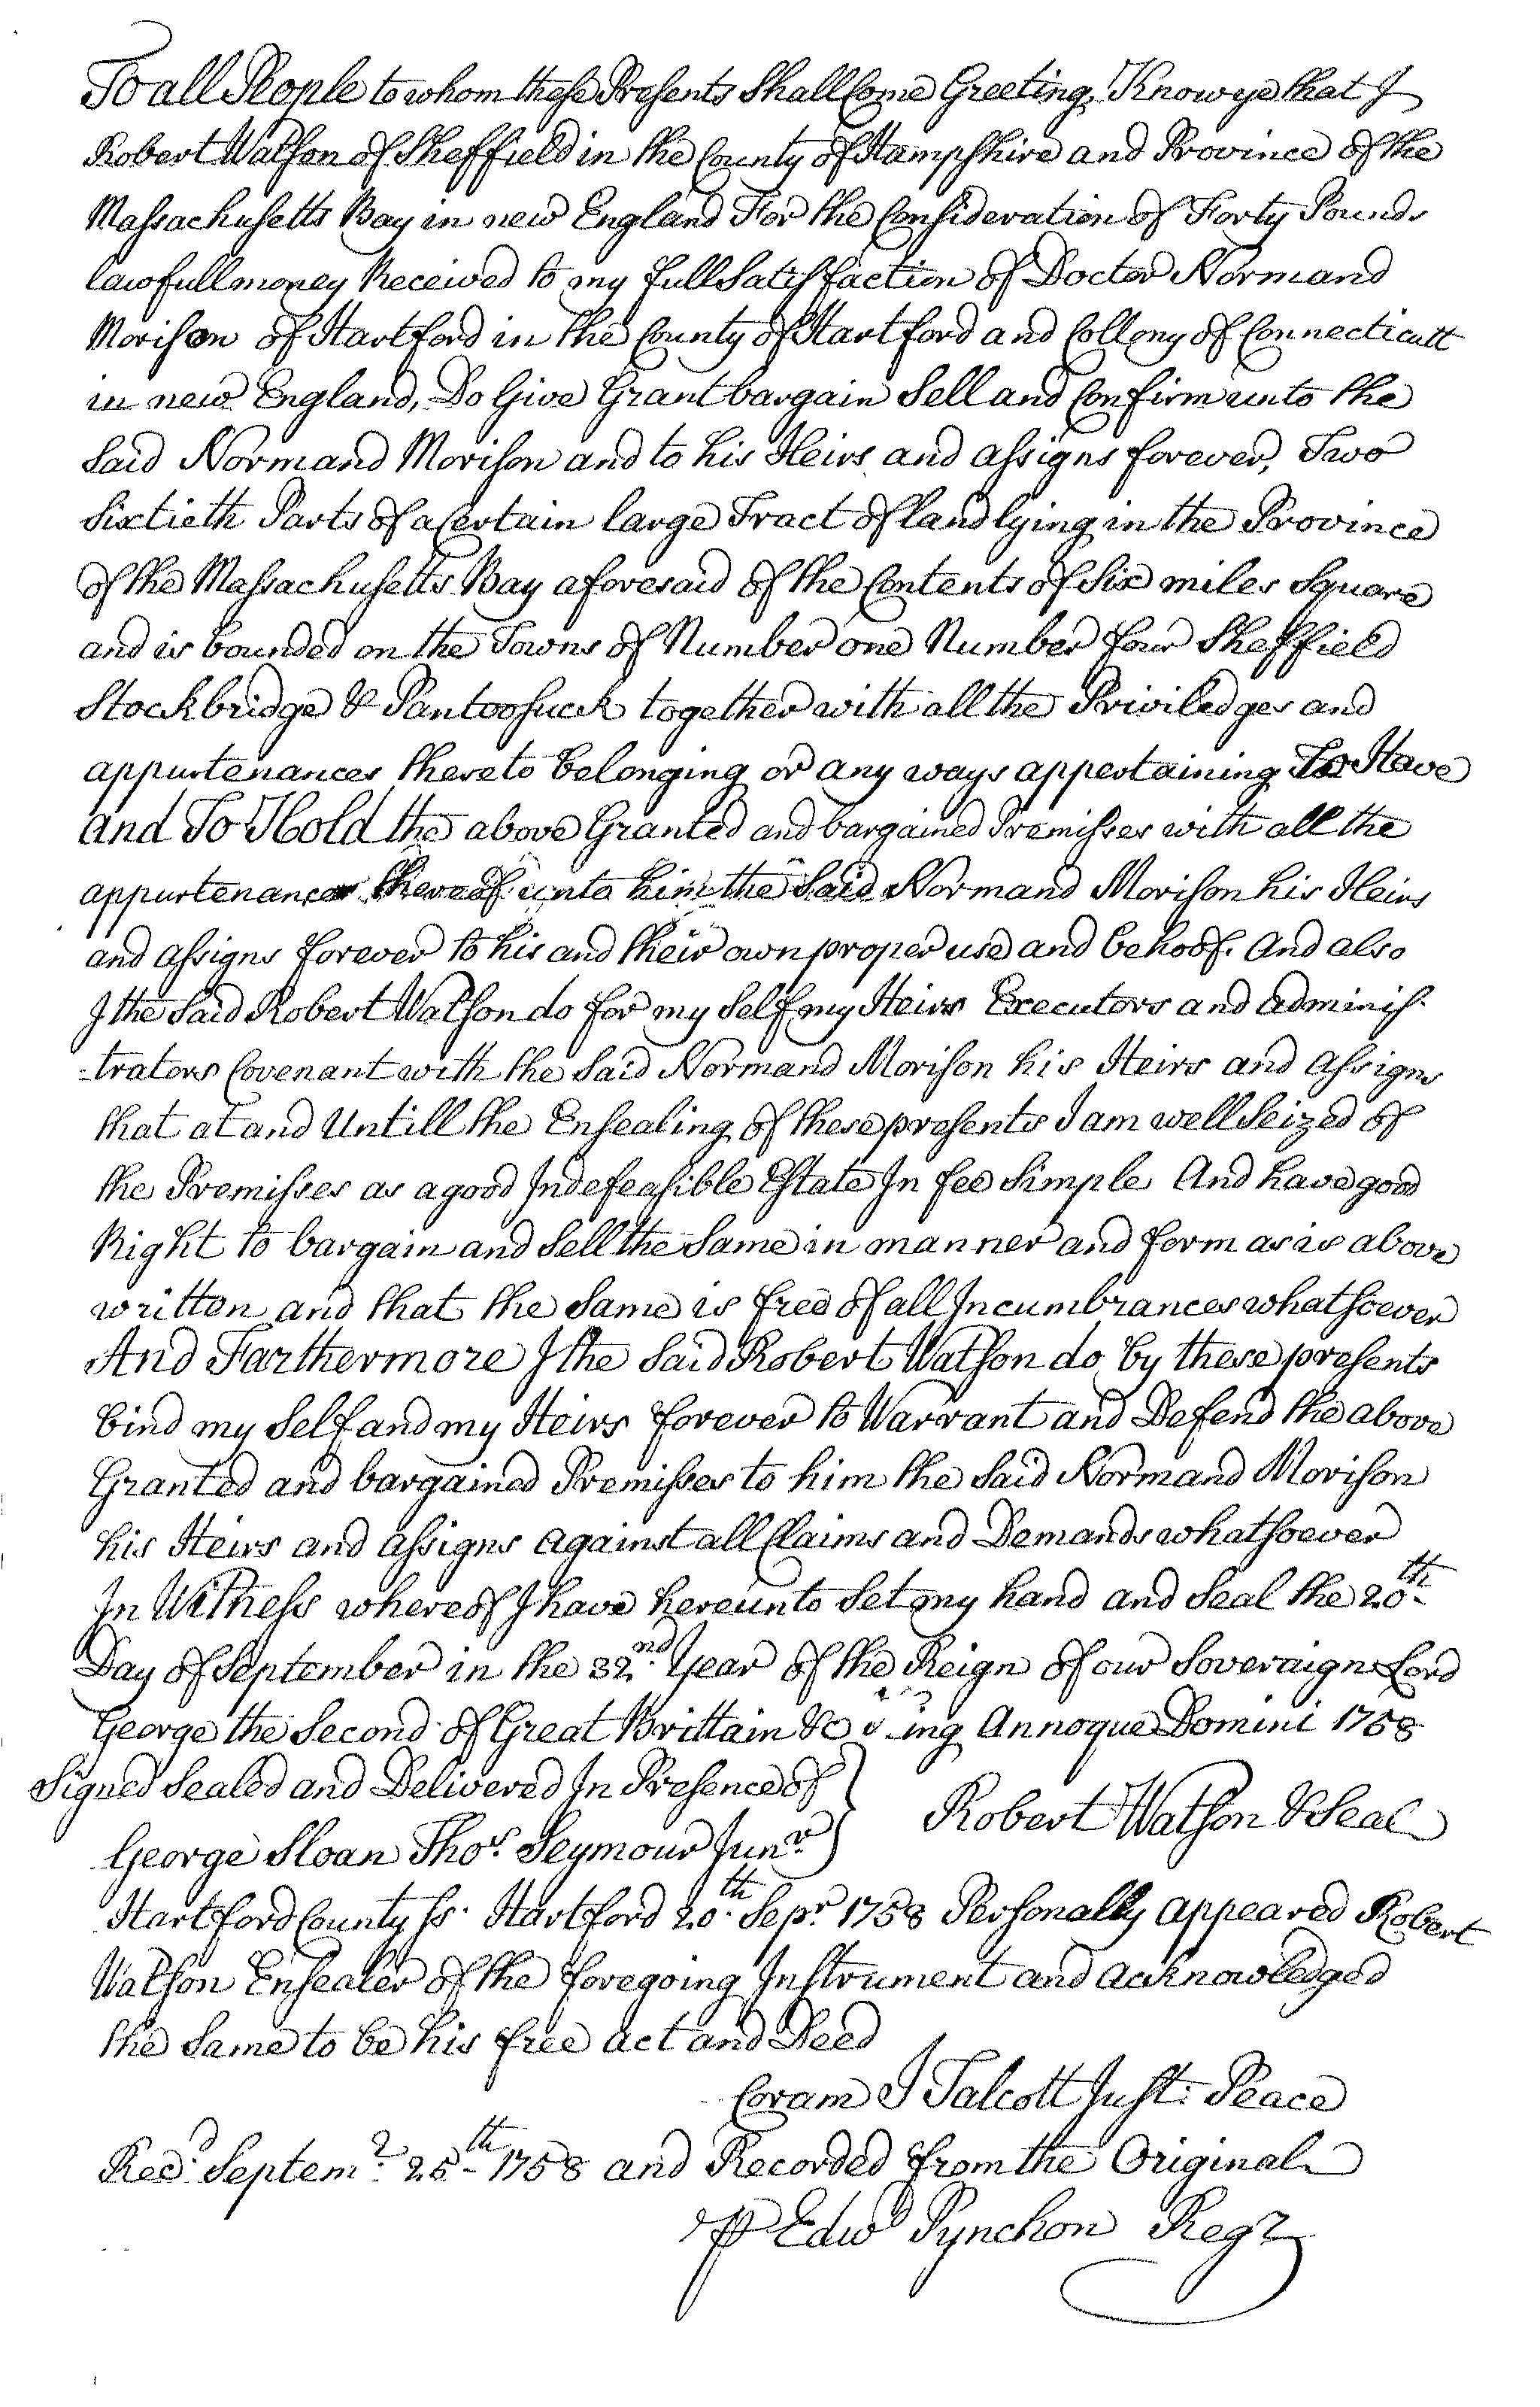 To all People to whom these Presents Shall Come Greeting, Know ye that I
Robert Watson of Sheffield in the County of Hampshire and Province of the
Massachusetts Bay in new England For the Consideration of Forty Pounds
lawfull money Received to my full Satisfaction of Doctor Normand
Morison of Hartford in the County of Hartford and Collony of Connecticutt
in new England, Do Give Grant bargain Sell and Confirm unto the
Said Normand Morison and to his Heirs and assigns forever, Two
Sixtieth Parts of a Certain large Tract of land lying in the Province
of the Massachusetts Bay aforesaid of the Contents of Six miles Square
and is bounded on the Towns of Number one Number four Sheffield
Stockbridge & Pantoosuck together with all the Priviledges and
appurtenances thereto belonging or any ways appertaining To Have
and To Hold the above Granted and bargained Premisses with all the
appurtenances thereof unto him the Said Normand Morison his Heirs
and assigns forever to his and their own proper use and behoof. And also
I the Said Robert Watson do for my Self my Heirs Executors and adminis-
-trators Covenant with the Said Normand Morison his Heirs and assigns
that at and Untill the Ensealing of these presents I am well Seized of
the Premisses as a good Indefeasible Estate In fee Simple And have good
Right to bargain and Sell the Same in manner and form as is above
written and that the Same is free of all Incumbrances whatsoever
And Farthermore I the Said Robert Watson do by these presents
bind my Self and my Heirs forever to Warrant and Defend the above
Granted and bargained Premisses to him the Said Normand Morison
his Heirs and assigns against all Claims and Demands whatsoever
In Witness whereof I have hereunto Set my hand and Seal the 20th
Day of September in the 32nd Year of the Reign of our Soveraign Lord
George the Second of Great Brittain &c Annoque Domini 1758
Signed Sealed and Delivered In Presence of } Robert Watson & Seal
George Sloan Thos. Seymour Junr.
Hartford County ss. Hartford 20th Sepr. 1758 Personally appeared Robert
Watson Ensealer of the foregoing Instrument and acknowledged
the Same to be his free act and Deed
Coram J Talcott Just: Peace
Recd. Septemr. 25th 1758 and Recorded from the Original
℘ Edwd Pynchon Regr